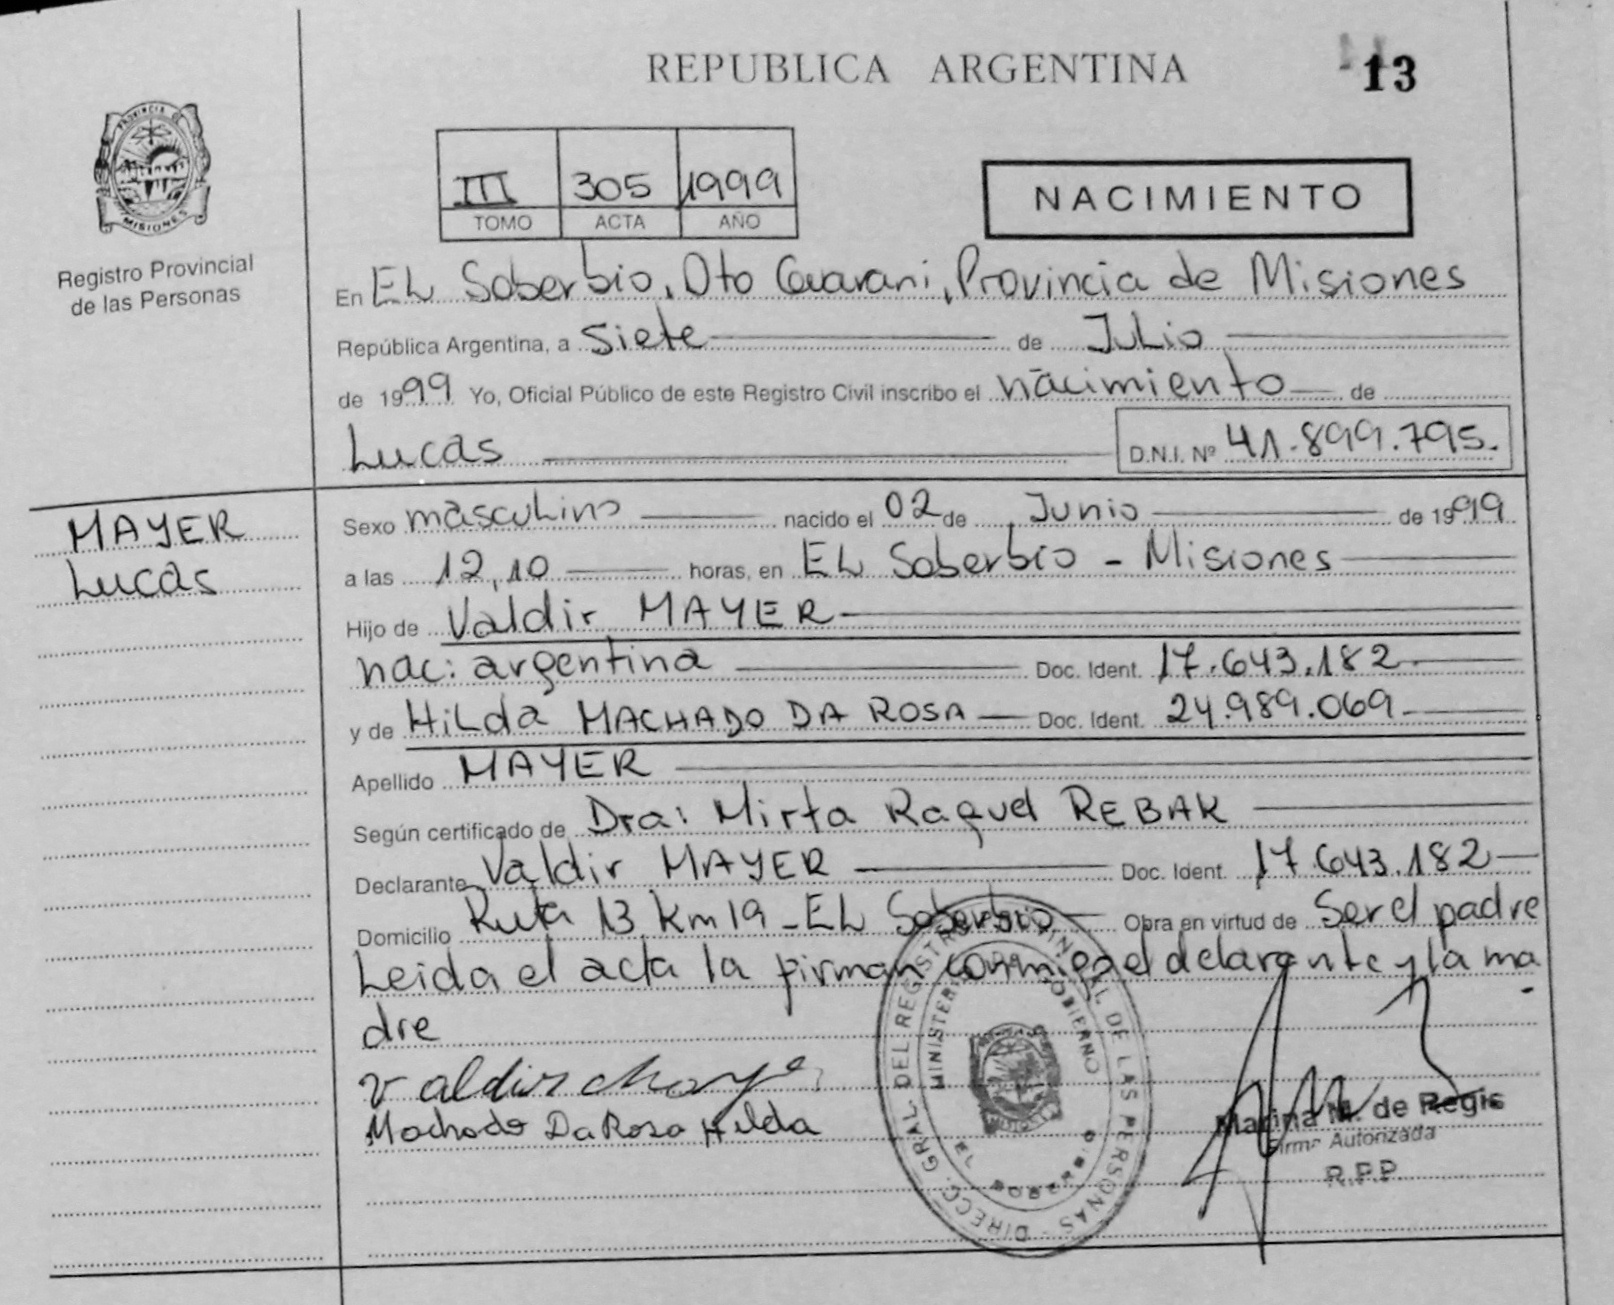 REPUBLICA ARGENTINA
13
PROVINCIA DE
MISIONES
Registro Provincial
de las Personas
III 305 1999
TOMO ACTA AÑO
NACIMIENTO
En EL Soberbio, Dto Guarani, Provincia de Misiones
República Argentina, a Siete de Julio
de 1999 Yo, Oficial Público de este Registro Civil inscribo el nacimiento de
Lucas D.N.I. Nº 41.899.795.
MAYER
Lucas
Sexo masculino nacido el 02 de Junio de 1999
a las 12,10 horas, en EL Soberbio - Misiones
Hijo de Valdir MAYER
nac: argentina Doc. Ident. 17.643.182
y de HiLda MACHADO DA ROSA Doc. Ident. 24.989.069
Apellido MAYER
Según certificado de Dra: Mirta Raquel REBAK
Declarante Valdir MAYER Doc. Ident. 17.643.182
Domicilio Ruta 13 Km 19 - EL Soberbio Obra en virtud de Ser el padre
Leida el acta la firman conmigo el delarante y la ma
dre
Valdir Maye
Machado Da Rosa Hilda
DIRECC. GRAL. DEL REGISTRO PROVINCIAL DE LAS PERSONAS
MINISTERIO DE GOBIERNO
Marina M. de Regis
Firma Autorizada
R.P.P